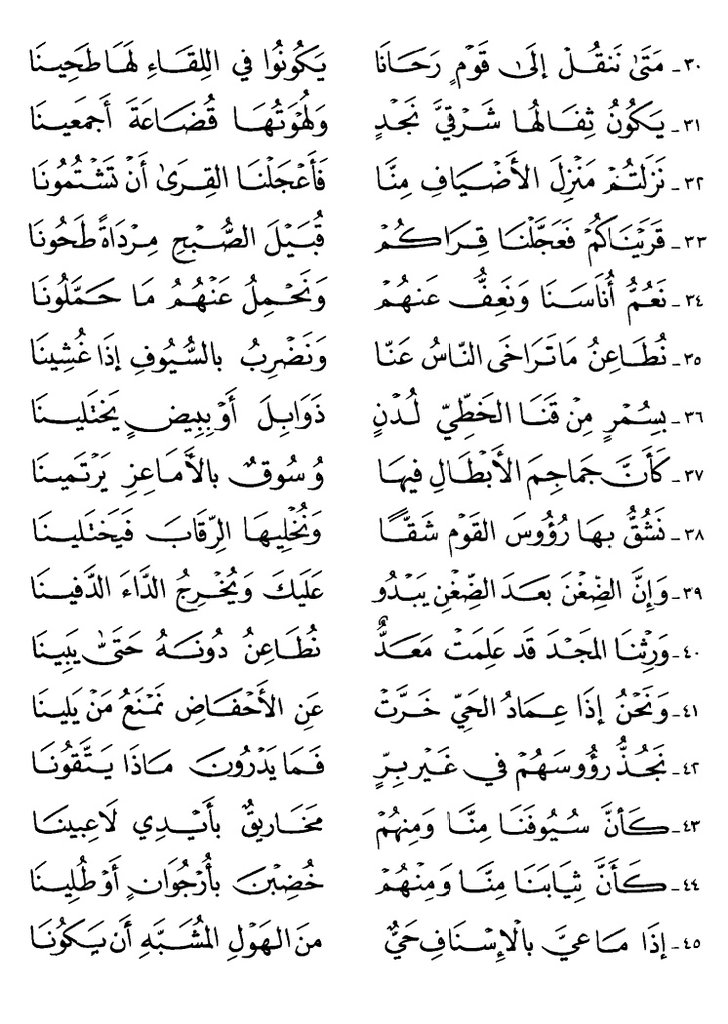 ٣٠ـ مَتَىٰ نَنقُلْ إلَىٰ قَوْمٍ رَحَانَا يَكُونُوا في اللِقَاءِ لَهَا طَحِينَا
٣١ـ يَكُونُ ثِفَالُها شَرْقِيَّ نَجْدٍ وَلُهْوَتُهَا قُضَاعَةَ أَجمَعينَا
٣٢ـ نَزَلتُمْ مَنْزِلَ الأَضْيَافِ مِنَّا فَأَعْجَلْنَا القِرىٰ أَنْ تَشْتُمُونَا
٣٣ـ قَرَيْنَاكُمْ فَعَجَّلْنَا قِرَاكُمْ قُبَيْلَ الصُّبْحِ مِرْدَاةً طَحُونَا
٣٤ـ نَعُمُّ أُنَاسَنَا وَنَعِفُّ عَنهُمْ وَنَحْمِلُ عَنْهُمُ مَا حَمَّلُونَا
٣٥ـ نُطَاعِنُ مَا تَرَاخَى النّاسُ عَنّا وَنَضْرِبُ بالسُّيُوفِ إذَا غُشِينَا
٣٦ـ بِسُمْرٍ مِنْ قَنَا الخَطِّيِّ لُدْنٍ ذَوَابِلَ أَوْ بِبِيضٍ يَختَلينَا
٣٧ـ كَأَنَّ جَماجِمَ الأَبْطَالِ فِيهَا وُسُوقٌ بالأَمَاعِزِ يَرْتَمينَا
٣٨ـ نَشُقُّ بهَا رُؤُوسَ القَوْمِ شَقًّا وَنُخْلِيهَا الرِّقَابَ فَيَختَلينَا
٣٩ـ وَإنَّ الضِّغْنَ بَعدَ الضِّغْنِ يَبْدُو عَلَيكَ وَيُخْرِجُ الدَّاءَ الدَّفينَا
٤٠ـ وَرِثْنَا المَجْدَ قَد عَلِمَتْ مَعَدٌّ نُطَاعِنُ دُونَهُ حَتَّىٰ يَبِينَا
٤١ـ وَنَحْنُ إذَا عِمَادُ الحَيِّ خَرَّتْ عَنِ الأَحْفَاضِ نَمْنَعُ مَنْ يَلينَا
٤٢ـ نَجُذُّ رؤُوسَهُمْ في غَيْرِ بِرٍّ فَمَا يَدْرُونَ مَاذَا يَتَّقُونَا
٤٣ـ كَأنَّ سُيُوفَنَا مِنَّا وَمِنهُمْ مَخَارِيقٌ بأَيْدِي لَاعِبينَا
٤٤ـ كَأَنَّ ثِيَابَنَا مِنَّا وَمِنْهُمْ خُضِبْنَ بأُرْجُوَانٍ أَوْ طُلِينَا
٤٥ـ إذَا مَا عيَّ بالْإسْنَافِ حَيٌّ منَ الهَوْلِ المُشَبَّهِ أَن يَكُونَا